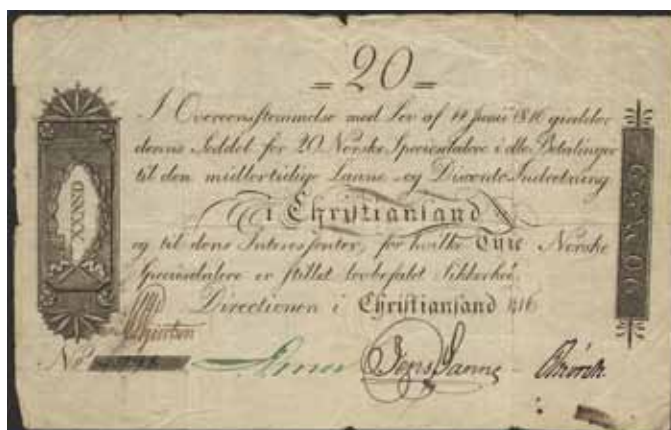 = 20 =
I Overeensstemmelse med Lov af 14 Junii 1816 gielder
denne Seddel for 20 Norske Speciesdalere i alle Betalinger
til den midlertidige Laane- og Disconto-Indretning
i Christiansand
og til dens Interessenter, for hvilke Tyve Norske
Speciesdalere er stillet lovbefalet Sikkerhed.
Directionen i Christiansand 1816
No
Jens Lanng
XXNSD
20 N. SD